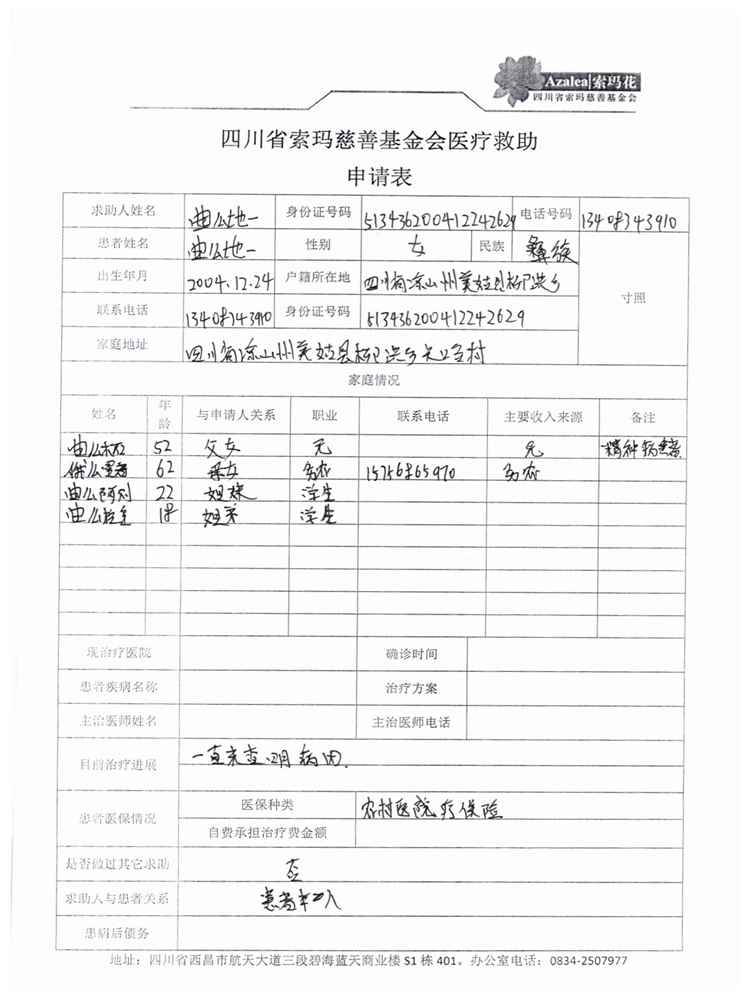 Azalea|索玛花
四川省索玛慈善基金会
四川省索玛慈善基金会医疗救助
申请表
求助人姓名 曲么地一 身份证号码 513436200412242629 电话号码 13408743910
患者姓名 曲么地一 性别 女 民族 彝族
出生年月 2004.12.24 户籍所在地 四川省凉山州美姑县 乡 寸照
联系电话 13408743910 身份证号码 513436200412242629
家庭地址 四川省凉山州美姑县 乡 村
家庭情况
姓名 年龄 与申请人关系 职业 联系电话 主要收入来源 备注
曲么 52 父女 无 无 精神病患者
62 母女 务农 15756865970 务农
曲么阿 22 姐妹 学生
曲么 18 姐弟 学生
现治疗医院 确诊时间
患者疾病名称 治疗方案
主治医师姓名 主治医师电话
目前治疗进展 一直未查明病因.
患者医保情况 医保种类 农村医院疗保险
自费承担治疗费金额
是否做过其它求助 否
求助人与患者关系 患者本人
患病后债务
地址：四川省西昌市航天大道三段碧海蓝天商业楼 S1 栋 401。办公室电话：0834-2507977